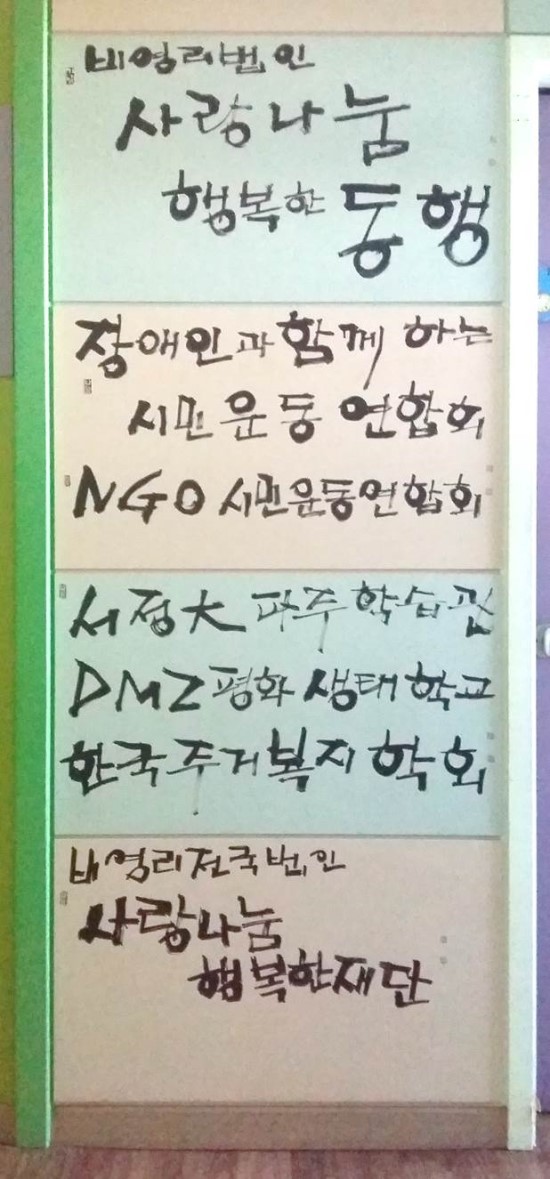 비영리법인
사랑나눔
행복한 동행
장애인과 함께 하는
시민운동 연합회
NGO 시민운동연합회
서정大 파주학습관
DMZ 평화 생태학교
한국주거복지학회
비영리전국법인
사랑나눔
행복한재단